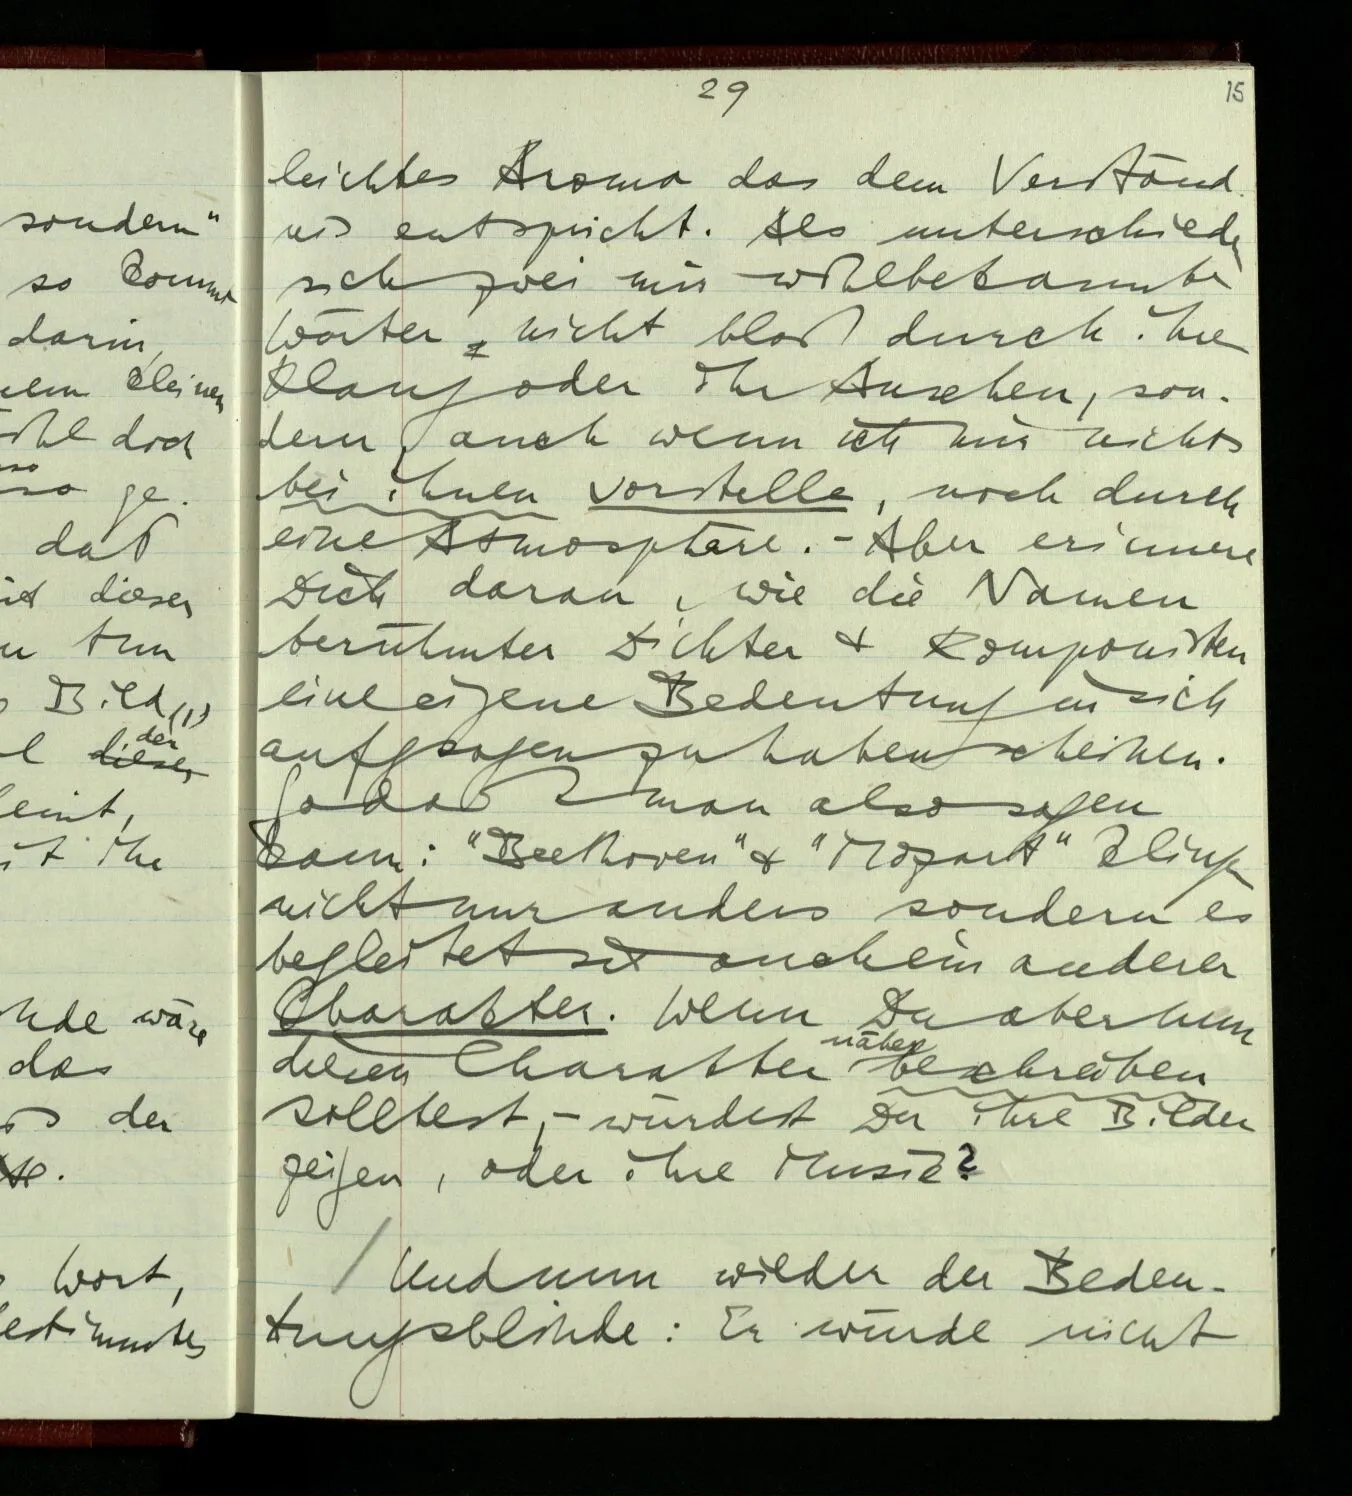 sondern"
so komm
darin,
kleinen
doch
so
so ge-
daß
dieser
tun
Bild,
der
dieser
wäre
das
der
Wort,
bestimmtes
29
15
leichtes Aroma das dem Verständ-
nis entspricht. Als unterschieden
sich zwei mir wohlbekannte
Wörter, nicht bloß durch ihre
Klang oder ihr Ansehen, son-
dern, auch wenn ich mir nichts
bei ihnen vorstelle, noch durch
eine Atmosphäre. – Aber erinnere
Dich daran, wie die Namen
berühmter Dichter & Komponisten
eine eigene Bedeutung in sich
aufgesogen zu haben scheinen.
So daß man also sagen
kann: "Beethoven" & "Mozart" klingen
nicht nur anders sondern es
begleitet sie auch ein anderer
Charakter. Wenn Du aber nun
näher
diesen Charakter beschreiben
solltest, – würdest Du ihre Bilder
zeigen, oder ihre Musik?
/ Und nun wieder der Bedeu-
tungsblinde: Er würde nicht